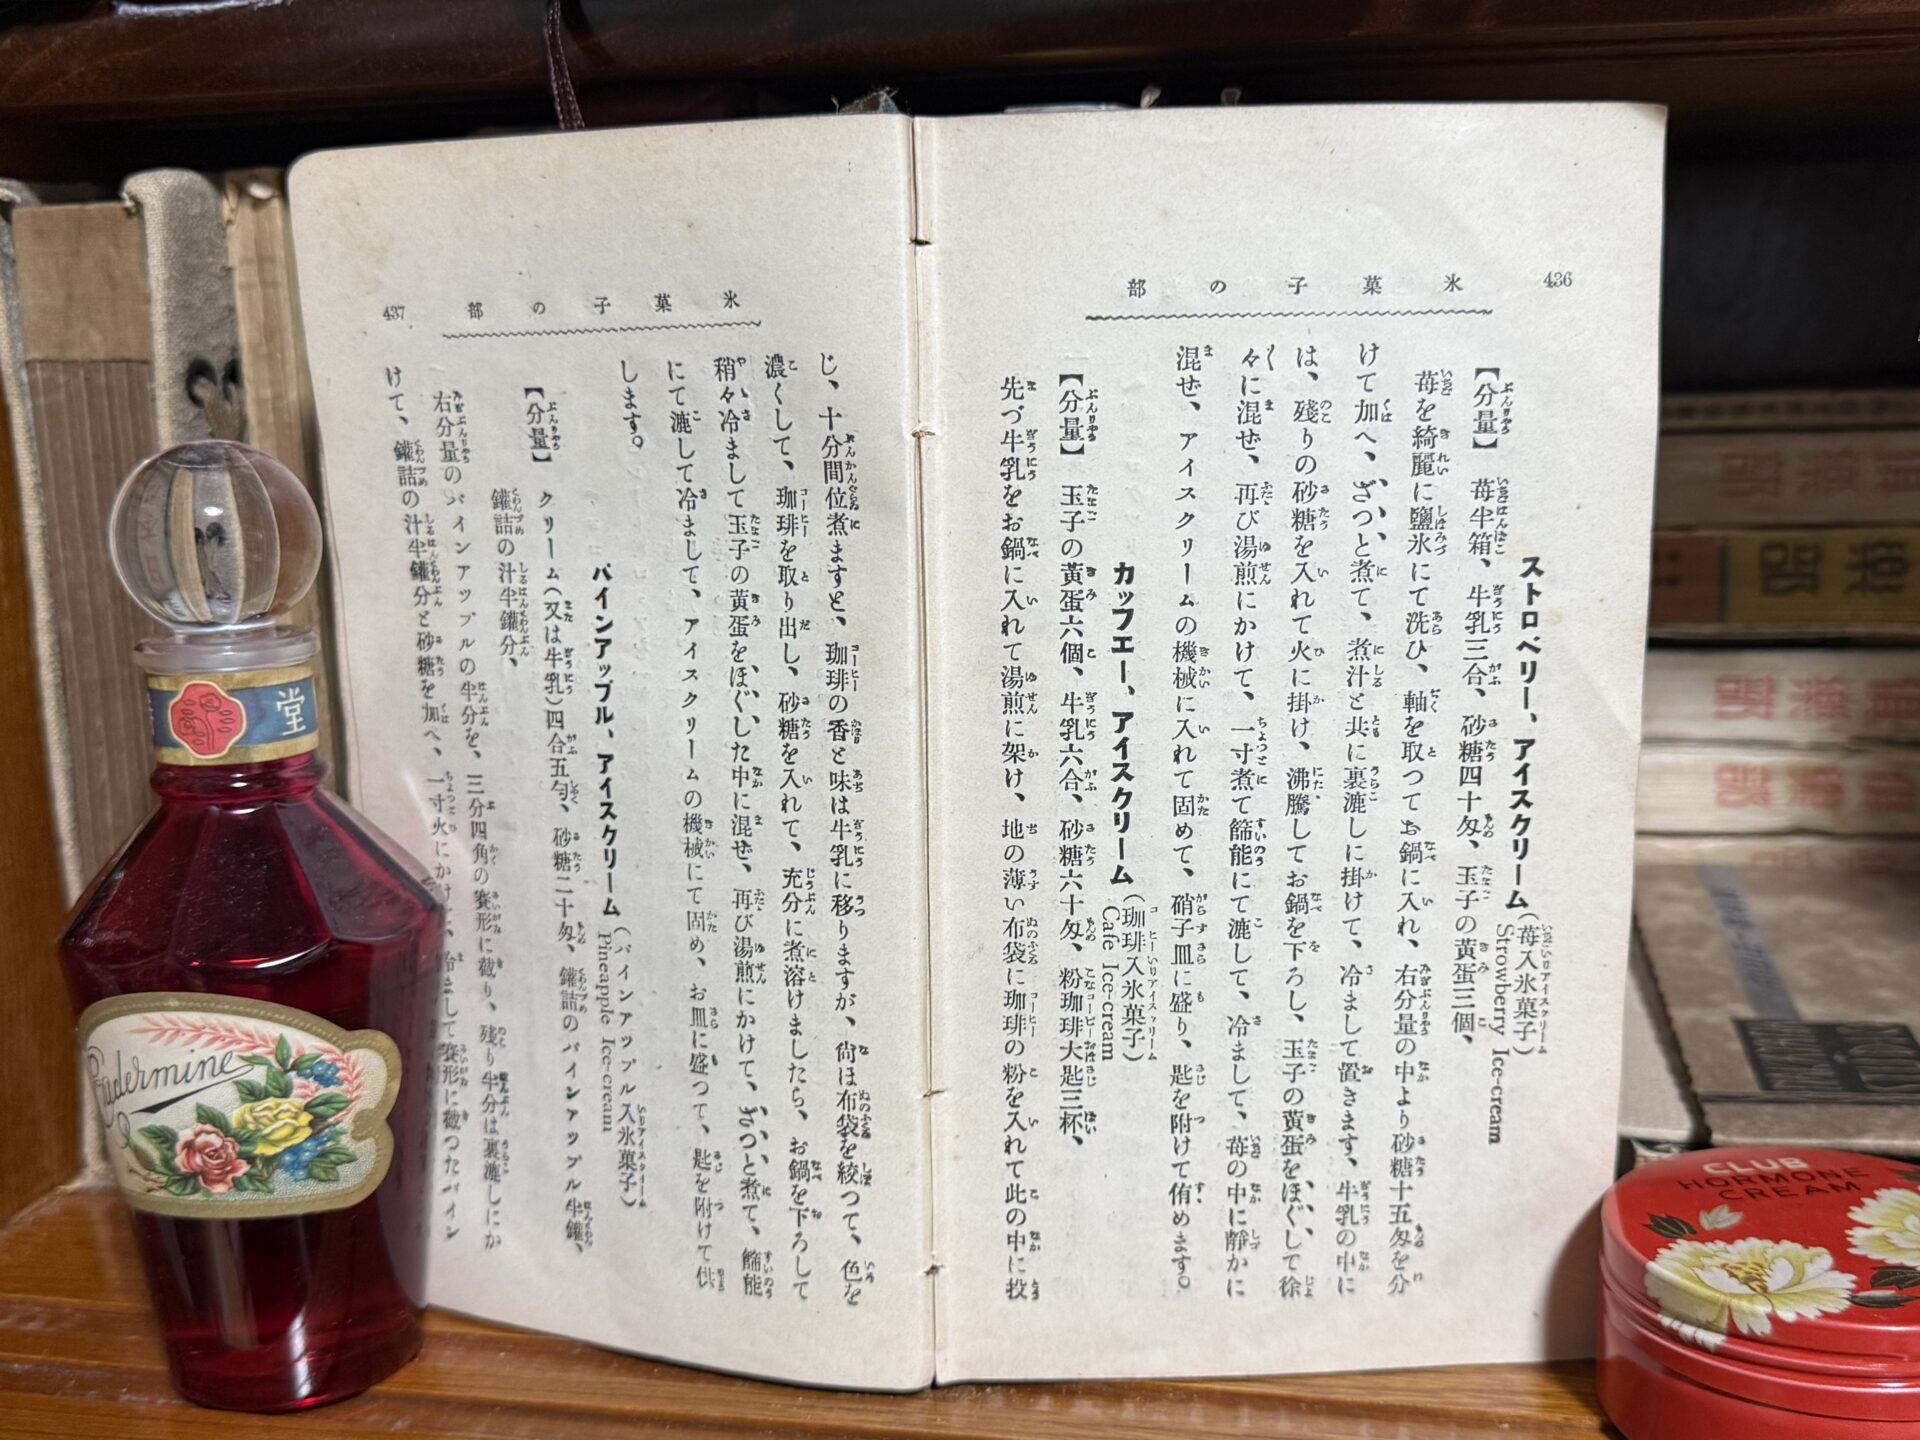 436
氷菓子の部
ストロベリー、アイスクリーム(苺入氷菓子)
Strowberry Ice-cream
【分量】 苺半箱、牛乳三合、砂糖四十匁、玉子の黄蛋三個、
苺を綺麗に鹽氷にて洗ひ、軸を取つてお鍋に入れ、右分量の中より砂糖十五匁を分
けて加へ、ざつと煮て、煮汁と共に裏漉しに掛けて、冷まして置きます、牛乳の中に
は、残りの砂糖を入れて火に掛け、沸騰してお鍋を下ろし、玉子の黄蛋をほぐして徐
々に混ぜ、再び湯煎にかけて、一寸煮て篩能にて漉して、冷まして、苺の中に靜かに
混ぜ、アイスクリームの機械に入れて固めて、硝子皿に盛り、匙を附けて侑めます。
カッフエー、アイスクリーム(珈琲入氷菓子)
Cafe Ice-cream
【分量】 玉子の黄蛋六個、牛乳六合、砂糖六十匁、粉珈琲大匙三杯、
先づ牛乳をお鍋に入れて湯煎に架け、地の薄い布袋に珈琲の粉を入れて此の中に投
437
氷菓子の部
じ、十分間位煮ますと、珈琲の香と味は牛乳に移りますが、尙ほ布袋を絞つて、色を
濃くして、珈琲を取り出し、砂糖を入れて、充分に煮溶けましたら、お鍋を下ろして
稍々冷まして玉子の黄蛋をほぐした中に混ぜ、再び湯煎にかけて、ざつと煮て、篩能
にて漉して冷まして、アイスクリームの機械にて固め、お皿に盛つて、匙を附けて供
します。
パインアップル、アイスクリーム(パインアップル入氷菓子)
Pineapple Ice-cream
【分量】 クリーム(又は牛乳)四合五勺、砂糖二十匁、罐詰のパインアップル半罐、
罐詰の汁半罐分、
右分量のパインアップルの半分を、三分四角の賽形に截り、残り半分は裏漉しにか
けて、罐詰の汁半罐分と砂糖を加へ、一寸火にかけて、冷まして賽形に截つたパイン
堂
Eudermine
CLUB
HORMONE
CREAM